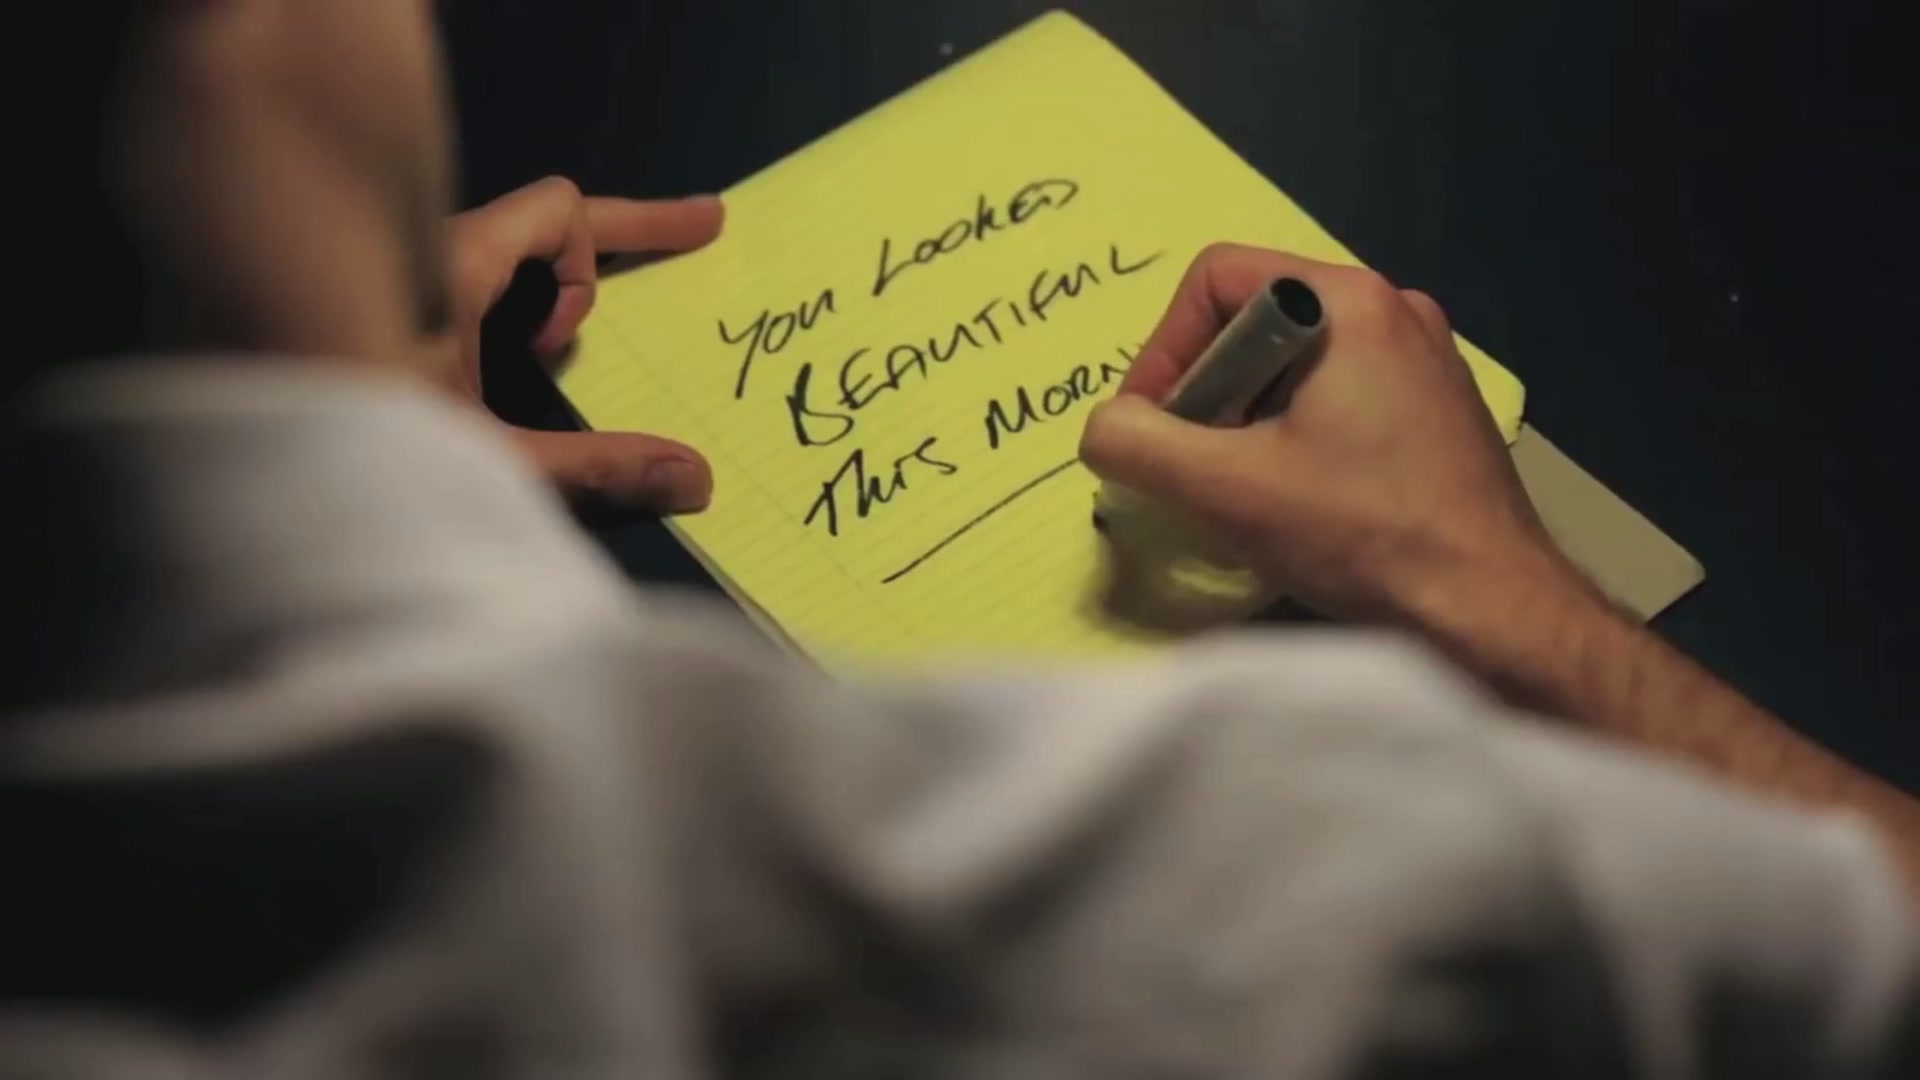 You Looked
BEAUTIFUL
This Morn